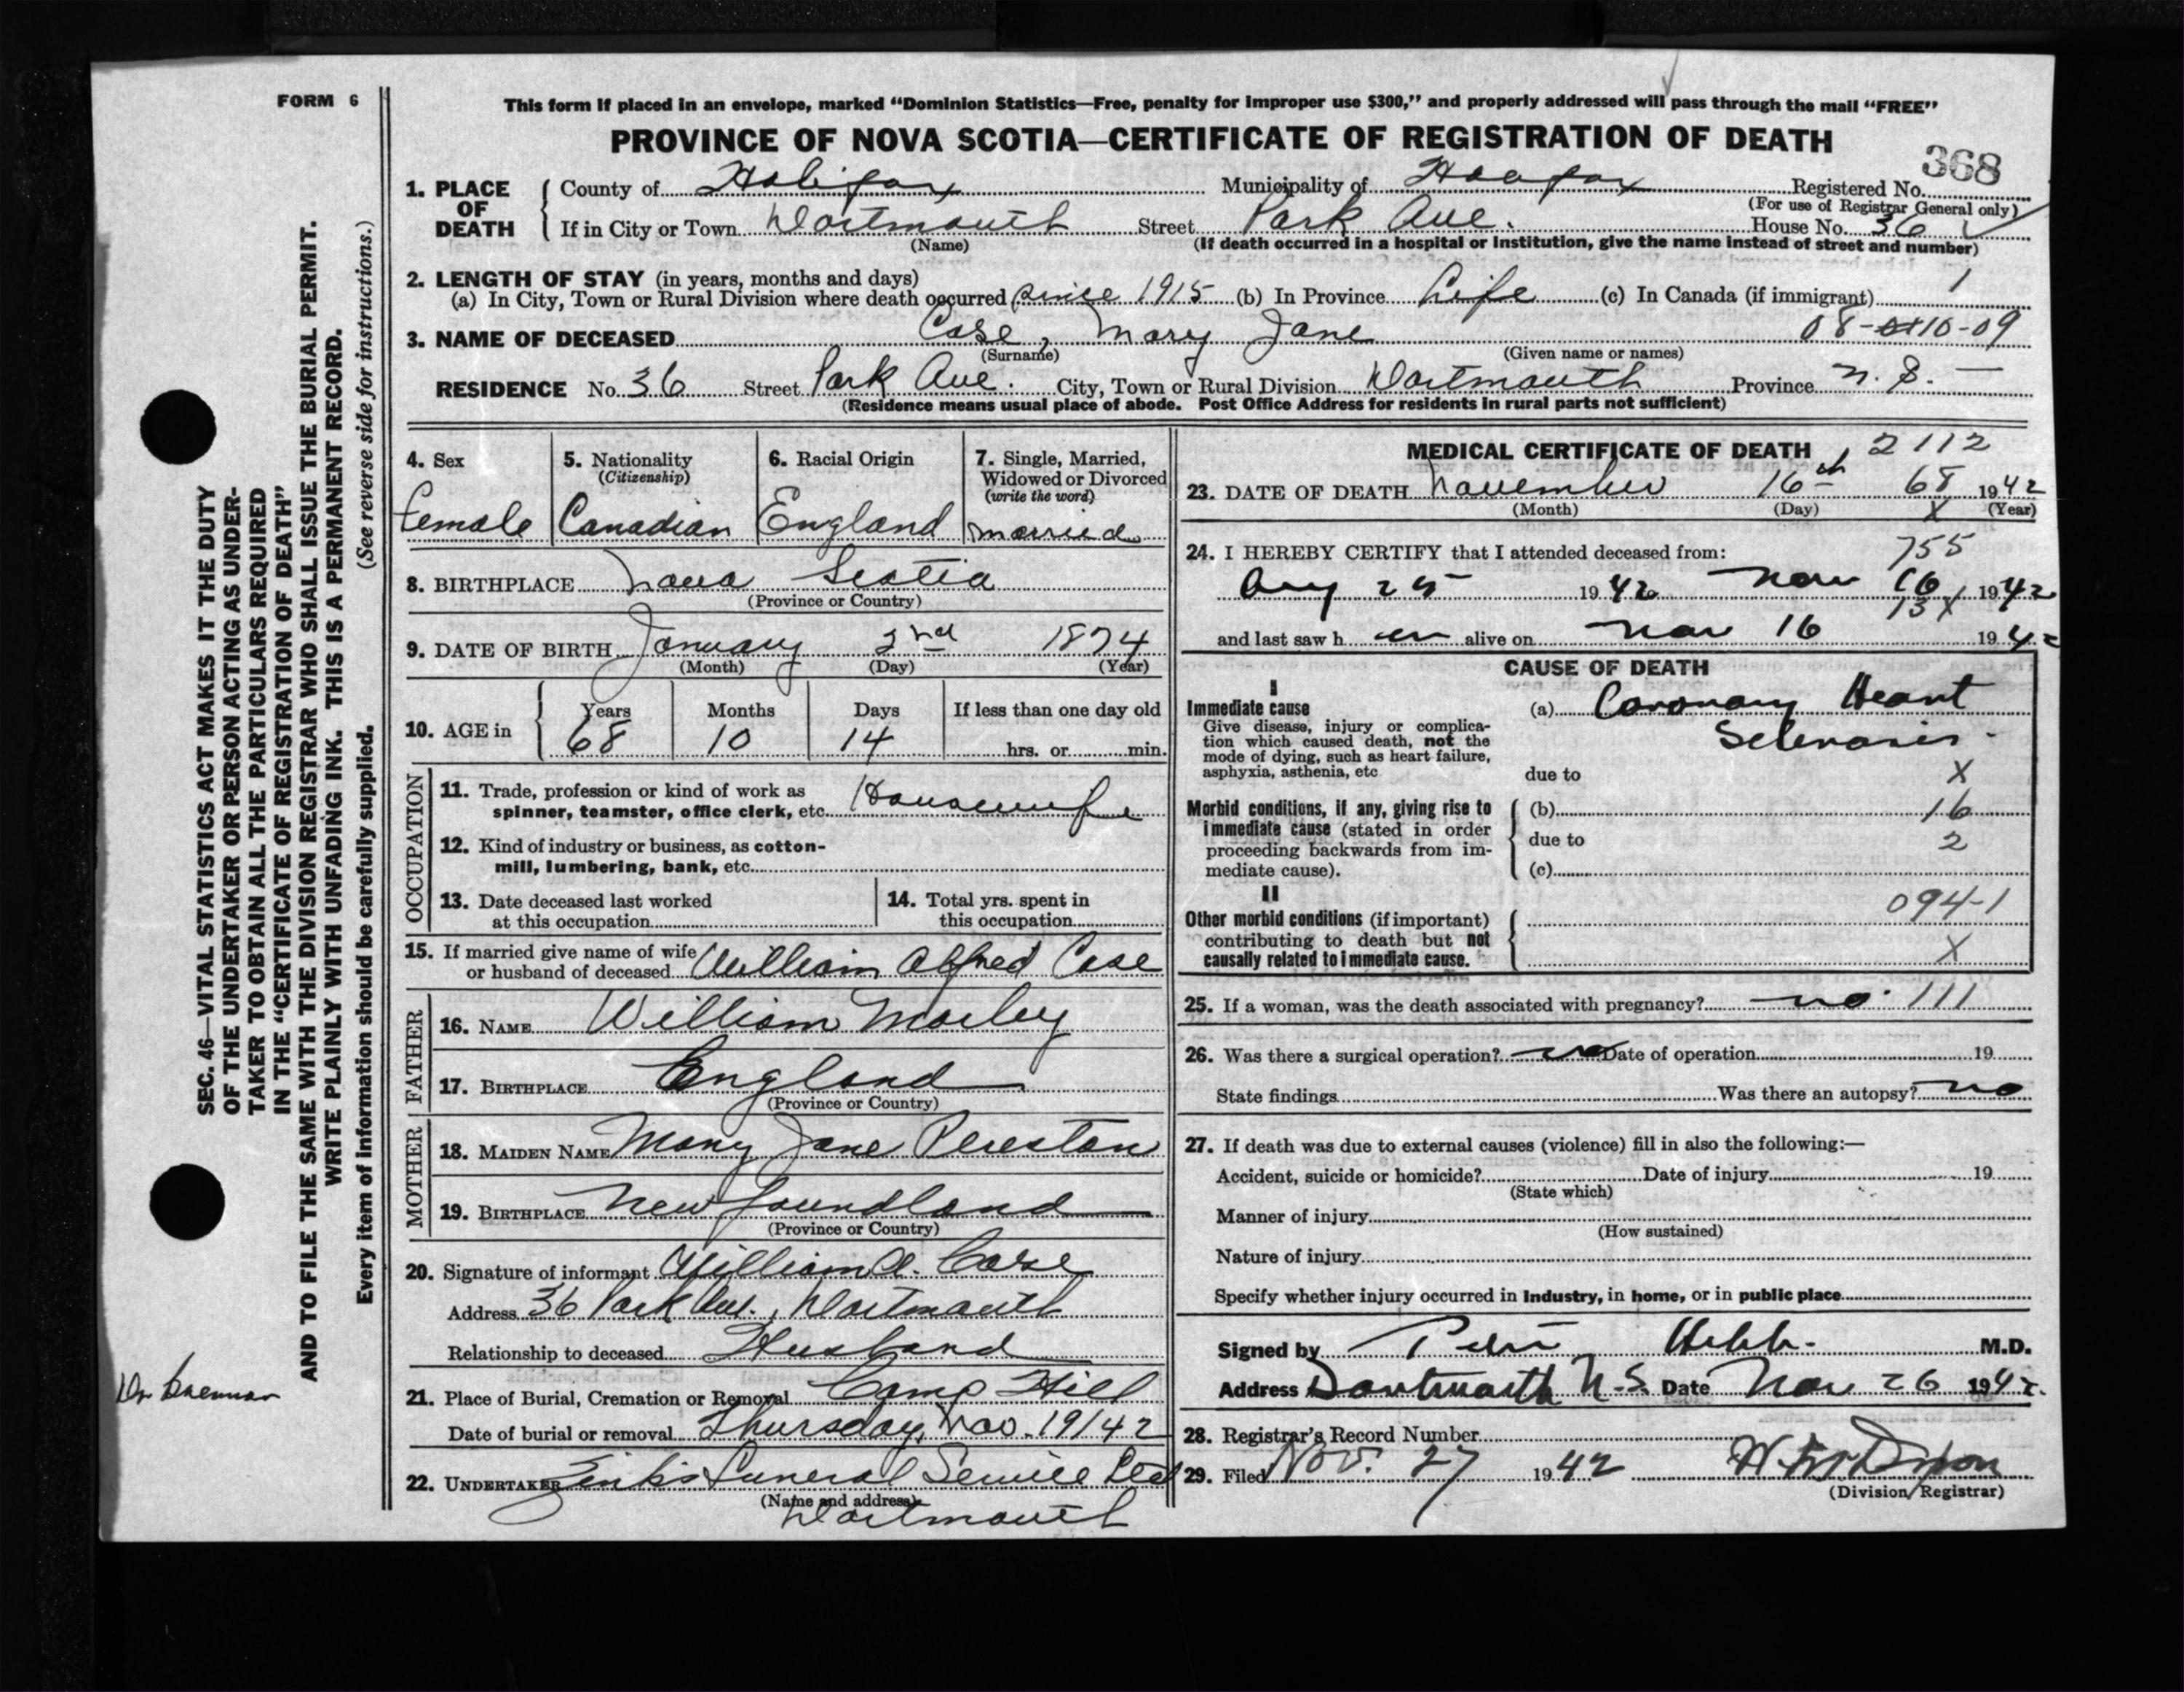 FORM 6
This form if placed in an envelope, marked "Dominion Statistics—Free, penalty for improper use $300," and properly addressed will pass through the mail "FREE"
PROVINCE OF NOVA SCOTIA—CERTIFICATE OF REGISTRATION OF DEATH
368
1. PLACE OF DEATH County of Halifax Municipality of Halifax Registered No.
(For use of Registrar General only)
If in City or Town Dartmouth Street Park Ave. House No. 36
(Name) (If death occurred in a hospital or institution, give the name instead of street and number)
2. LENGTH OF STAY (in years, months and days)
(a) In City, Town or Rural Division where death occurred since 1915 (b) In Province Life (c) In Canada (if immigrant) 1
3. NAME OF DECEASED Case, Mary Jane 08-10-09
(Surname) (Given name or names)
RESIDENCE No. 36 Street Park Ave. City, Town or Rural Division Dartmouth Province N.S. —
(Residence means usual place of abode. Post Office Address for residents in rural parts not sufficient)
4. Sex 5. Nationality 6. Racial Origin 7. Single, Married,
(Citizenship) Widowed or Divorced
(write the word)
Female Canadian England married
8. BIRTHPLACE Nova Scotia
(Province or Country)
9. DATE OF BIRTH January 2nd 1874
(Month) (Day) (Year)
10. AGE in Years Months Days If less than one day old
68 10 14 hrs. or min.
OCCUPATION
11. Trade, profession or kind of work as
spinner, teamster, office clerk, etc. Housewife
12. Kind of industry or business, as cotton-
mill, lumbering, bank, etc.
13. Date deceased last worked 14. Total yrs. spent in
at this occupation this occupation
15. If married give name of wife
or husband of deceased William Alfred Case
FATHER
16. NAME William
17. BIRTHPLACE England
(Province or Country)
MOTHER
18. MAIDEN NAME Mary Jane
19. BIRTHPLACE Newfoundland
(Province or Country)
20. Signature of informant William A. Case
Address 36 Park Ave., Dartmouth
Relationship to deceased Husband
21. Place of Burial, Cremation or Removal Camp Hill
Date of burial or removal Thursday, Nov. 19/42
22. UNDERTAKER Zink's Funeral Service Ltd
(Name and address)
Dartmouth
MEDICAL CERTIFICATE OF DEATH 2112
23. DATE OF DEATH November 16th 68 1942
(Month) (Day) X (Year)
24. I HEREBY CERTIFY that I attended deceased from: 755
Aug 25 1942 Nov 16 1942
13X
and last saw h er alive on Nov 16 1942
CAUSE OF DEATH
I
Immediate cause (a) Coronary Heart
Give disease, injury or complica-
tion which caused death, not the Sclerosis.
mode of dying, such as heart failure,
asphyxia, asthenia, etc due to X
Morbid conditions, if any, giving rise to (b) 16
immediate cause (stated in order due to 2
proceeding backwards from im-
mediate cause). (c)
II 094-1
Other morbid conditions (if important)
contributing to death but not
causally related to immediate cause. X
25. If a woman, was the death associated with pregnancy? no. 111
26. Was there a surgical operation? no Date of operation 19
State findings Was there an autopsy? no
27. If death was due to external causes (violence) fill in also the following:—
Accident, suicide or homicide? Date of injury 19
(State which)
Manner of injury
(How sustained)
Nature of injury
Specify whether injury occurred in industry, in home, or in public place
Signed by Hebb. M.D.
Address Dartmouth N.S. Date Nov 26 1942.
28. Registrar's Record Number
29. Filed Nov. 27 1942
(Division Registrar)
SEC. 46—VITAL STATISTICS ACT MAKES IT THE DUTY
OF THE UNDERTAKER OR PERSON ACTING AS UNDER-
TAKER TO OBTAIN ALL THE PARTICULARS REQUIRED
IN THE "CERTIFICATE OF REGISTRATION OF DEATH"
AND TO FILE THE SAME WITH THE DIVISION REGISTRAR WHO SHALL ISSUE THE BURIAL PERMIT.
WRITE PLAINLY WITH UNFADING INK. THIS IS A PERMANENT RECORD.
Every item of information should be carefully supplied. (See reverse side for instructions.)